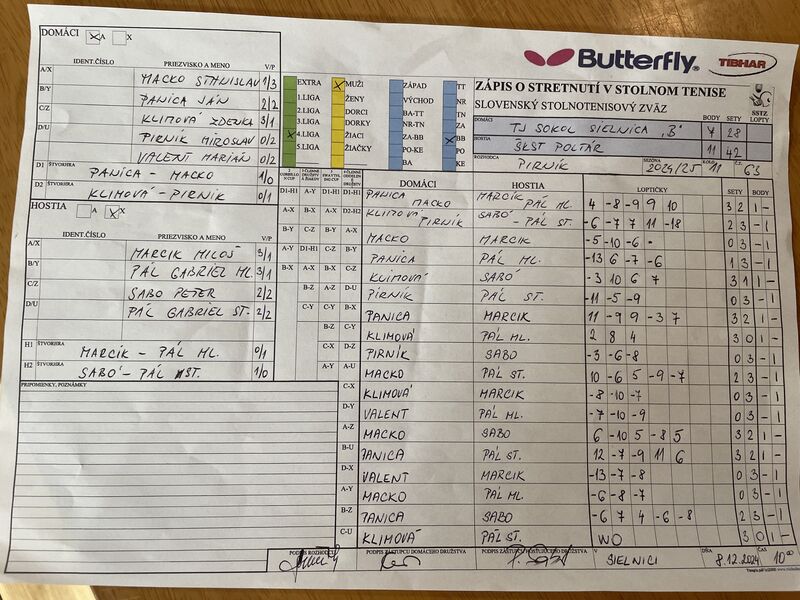 DOMÁCI X A X
IDENT.ČÍSLO PRIEZVISKO A MENO V/P
A/X MACKO STANISLAV 1/3
B/Y PANICA JÁN 2/2
C/Z KLIMOVÁ ZDENKA 3/1
D/U PIRNÍK MIROSLAV 0/2
VALENT MARIÁN 0/2
D1 ŠTVORHRA PANICA - MACKO 1/0
D2 ŠTVORHRA KLIMOVÁ - PIRNÍK 0/1
HOSTIA A X X
IDENT.ČÍSLO PRIEZVISKO A MENO V/P
A/X MARCIK MILOŠ 3/1
B/Y PÁL GABRIEL ML. 3/1
C/Z SABO PETER 2/2
D/U PÁL GABRIEL ST. 2/2
H1 ŠTVORHRA MARCIK - PÁL ML. 0/1
H2 ŠTVORHRA SABÓ - PÁL ST. 1/0
PRIPOMIENKY, POZNÁMKY
Butterfly TIBHAR
ZÁPIS O STRETNUTÍ V STOLNOM TENISE
SLOVENSKÝ STOLNOTENISOVÝ ZVÄZ
SSTZ
EXTRA X MUŽI ZÁPAD TT
1.LIGA ŽENY VÝCHOD NR
2.LIGA DORCI BA-TT TN
3.LIGA DORKY NR-TN ZA
X 4.LIGA ŽIACI ZA-BB X BB
5.LIGA ŽIAČKY PO-KE PO
BA KE
DOMÁCI TJ SOKOL SIELNICA "B" BODY 7 SETY 28 LOPTY
HOSTIA ŠKST POLTÁR 11 42
ROZHODCA PIRNÍK SEZÓNA 2024/25 KOLO 11 63
DOMÁCI HOSTIA LOPTIČKY SETY BODY
D1-H1 PANICA MACKO MARCIK PÁL ML. 4 -8 -9 9 10 3 2 1 -
D2-H2 KLIMOVÁ PIRNÍK SABÓ - PÁL ST. -6 -7 7 11 -18 2 3 - 1
A-X MACKO MARCIK -5 -10 -6 0 3 - 1
B-Y PANICA PÁL ML. -13 6 -7 -6 1 3 - 1
C-Z KLIMOVÁ SABÓ -3 10 6 7 3 1 1 -
D-U PIRNÍK PÁL ST. -11 -5 -9 0 3 - 1
B-X PANICA MARCIK 11 -9 9 -3 7 3 2 1 -
C-Y KLIMOVÁ PÁL ML. 2 8 4 3 0 1 -
D-Z PIRNÍK SABO -3 -6 -8 0 3 - 1
A-U MACKO PÁL ST. 10 -6 5 -9 -7 2 3 - 1
C-X KLIMOVÁ MARCIK -8 -10 -7 0 3 - 1
D-Y VALENT PÁL ML. -7 -10 -9 0 3 - 1
A-Z MACKO SABO 6 -10 5 -8 5 3 2 1 -
B-U PANICA PÁL ST. 12 -7 -9 11 6 3 2 1 -
D-X VALENT MARCIK -13 -7 -8 0 3 - 1
A-Y MACKO PÁL ML. -6 -8 -7 0 3 - 1
B-Z PANICA SABO -6 7 4 -6 -8 2 3 - 1
C-U KLIMOVÁ PÁL ST. WO 3 0 1 -
PODPIS ROZHODCU PODPIS ZÁSTUPCU DOMÁCEHO DRUŽSTVA PODPIS ZÁSTUPCU HOSŤUJÚCEHO DRUŽSTVA V SIELNICI DŇA 8.12.2024 ČAS 10 00